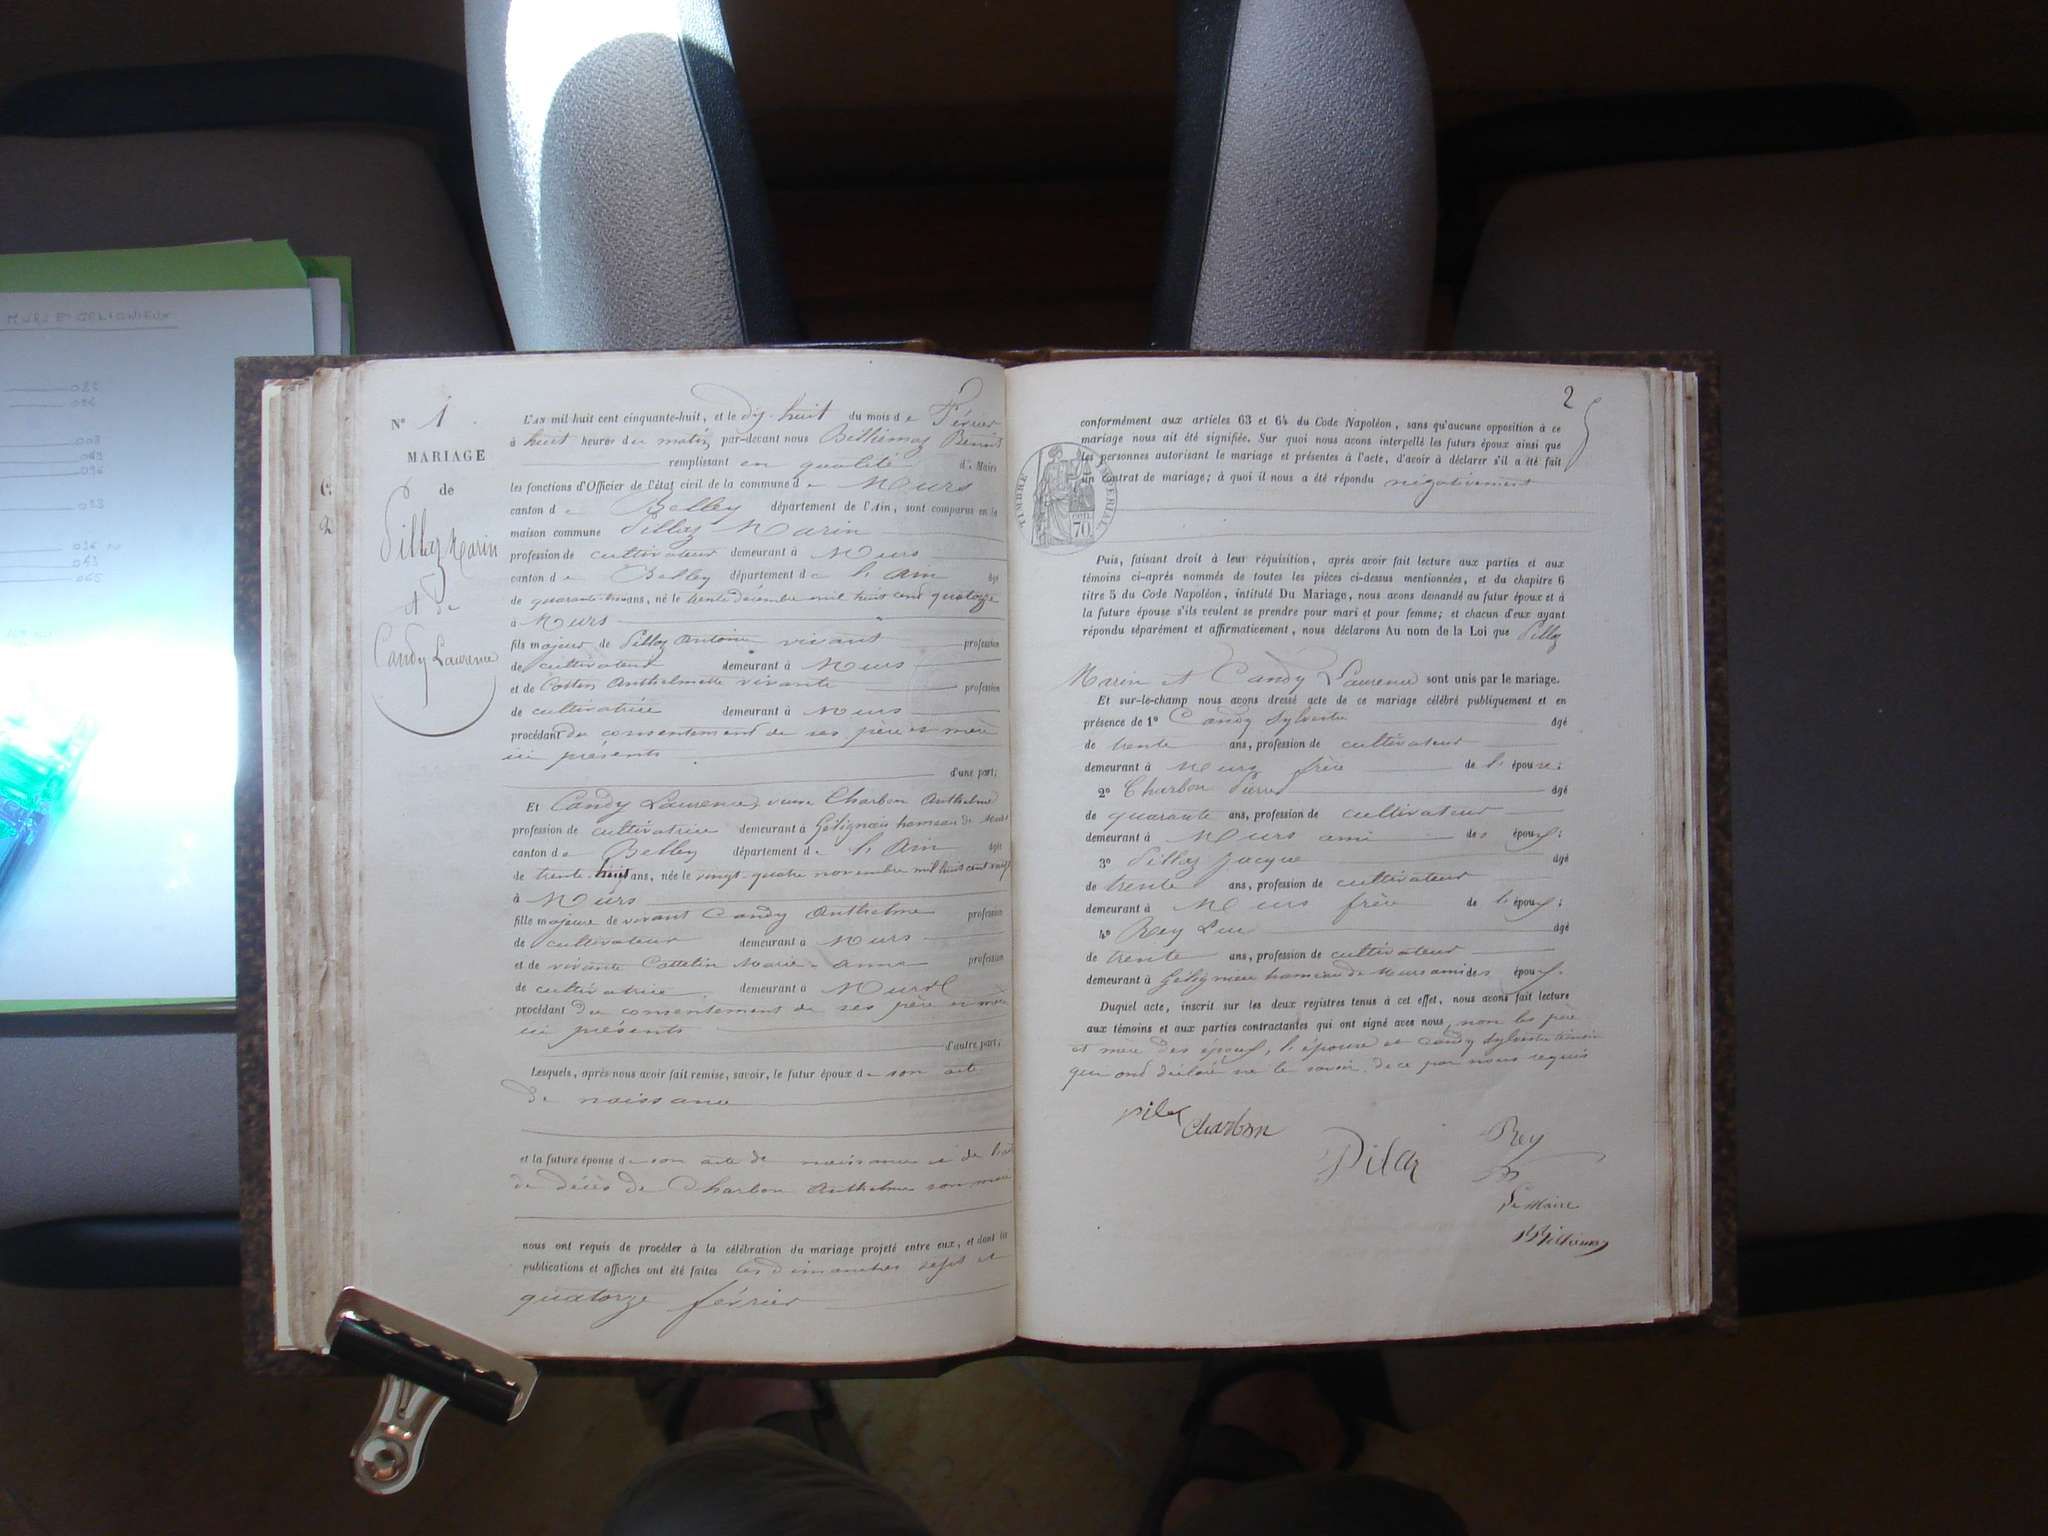 MURS ET GELIGNIEUX
N° 1
MARIAGE
de
Pillaz Marin
et de
Candy Laurence
L'AN mil huit cent cinquante-huit, et le dix-huit du mois de Février
à huit heures du matin par-devant nous Billiemaz Benoit
remplissant en qualité de Maire
les fonctions d'Officier de l'état civil de la commune de Murs
canton de Belley département de l'Ain, sont comparus en la
maison commune Pillaz Marin
profession de cultivateur demeurant à Murs
canton de Belley département de l'Ain âgé
de quarante-trois ans, né le trente décembre mil huit cent quatorze
à Murs
fils majeur de Pillaz Antoine vivant profession
de cultivateur demeurant à Murs
et de Cottin Anthelmette vivante profession
de cultivatrice demeurant à Murs
procédant du consentement de ses père et mère
ici présents
d'une part;
Et Candy Laurence, veuve Charbon Anthelme
profession de cultivatrice demeurant à Gélignieux hameau de Murs
canton de Belley département de l'Ain âgée
de trente-huit ans, née le vingt-quatre novembre mil huit cent vingt
à Murs
fille majeure de vivant Candy Anthelme profession
de cultivateur demeurant à Murs
et de vivante Cattelin Marie-anne profession
de cultivatrice demeurant à Murs
procédant du consentement de ses père et mère
ici présents
d'autre part;
Lesquels, après nous avoir fait remise, savoir, le futur époux de son acte
de naissance
et la future épouse de son acte de naissance et de
de décès de Charbon Anthelme son mari
nous ont requis de procéder à la célébration du mariage projeté entre eux, et dont les
publications et affiches ont été faites les dimanches sept et
quatorze février
2
conformément aux articles 63 et 64 du Code Napoléon, sans qu'aucune opposition à ce
mariage nous ait été signifiée. Sur quoi nous avons interpellé les futurs époux ainsi que
les personnes autorisant le mariage et présentes à l'acte, d'avoir à déclarer s'il a été fait
un contrat de mariage; à quoi il nous a été répondu négativement
TIMBRE IMPÉRIAL
70
Puis, faisant droit à leur réquisition, après avoir fait lecture aux parties et aux
témoins ci-après nommés de toutes les pièces ci-dessus mentionnées, et du chapitre 6
titre 5 du Code Napoléon, intitulé Du Mariage, nous avons demandé au futur époux et à
la future épouse s'ils veulent se prendre pour mari et pour femme; et chacun d'eux ayant
répondu séparément et affirmativement, nous déclarons Au nom de la Loi que Pillaz
Marin et Candy Laurence sont unis par le mariage.
Et sur-le-champ nous avons dressé acte de ce mariage célébré publiquement et en
présence de 1° Candy Sylvestre âgé
de trente ans, profession de cultivateur
demeurant à Murs frère de l'épouse;
2° Charbon Pierre âgé
de quarante ans, profession de cultivateur
demeurant à Murs ami des époux;
3° Pillaz Jacque âgé
de trente ans, profession de cultivateur
demeurant à Murs frère de l'époux;
4° Rey Luc âgé
de trente ans, profession de cultivateur
demeurant à Gélignieux hameau de Murs ami des époux.
Duquel acte, inscrit sur les deux registres tenus à cet effet, nous avons fait lecture
aux témoins et aux parties contractantes qui ont signé avec nous, non les père
et mère des époux, l'épouse et Candy Sylvestre témoin
qui ont déclaré ne le savoir de ce par nous requis
pilaz
Charbon
Pilaz
Rey
Le Maire
Billiemaz